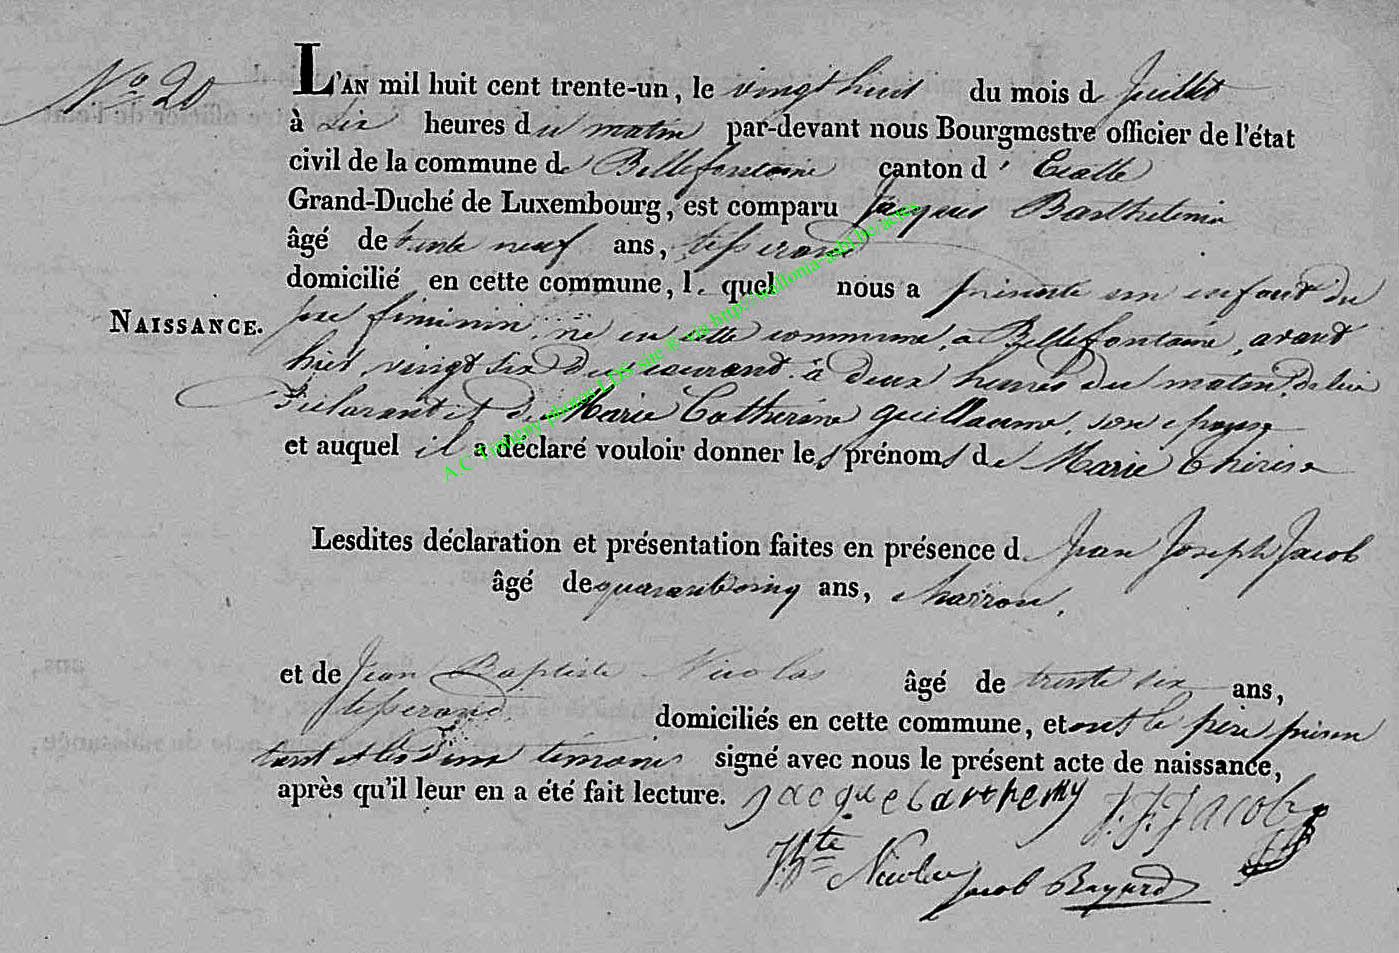 N° 20
L'AN mil huit cent trente-un, le vingt huit du mois de Juillet
à dix heures du matin par-devant nous Bourgmestre officier de l'état
civil de la commune de Bellefontaine canton d'Etalle
Grand-Duché de Luxembourg, est comparu Jacques Barthelemi
âgé de trente neuf ans, tisserand
domicilié en cette commune, lequel nous a présenté un enfant du
NAISSANCE.
sexe féminin, né en cette commune, à Bellefontaine, avant
hier, vingt six du courant à deux heures du matin, de lui
déclarant et de Marie Catherine Guillaume, son épouse
et auquel il a déclaré vouloir donner les prénoms de Marie Thérèse
Lesdites déclaration et présentation faites en présence d Jean Joseph Jacob
âgé de quarante cinq ans, charron,
et de Jean Baptiste Nicolas âgé de trente six ans,
tisserand, domiciliés en cette commune, et ont le père présen
tant et les deux témoins signé avec nous le présent acte de naissance,
après qu'il leur en a été fait lecture. Jacque barthemy J. J. Jacob
J Bte Nicolas Jacob Bayard
A.C Tintigny photos LDS site © via http://wallonia-asbl.be/actes